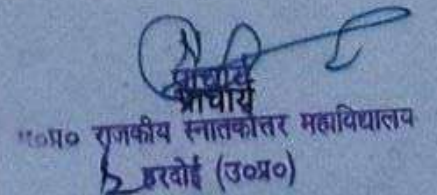 प्राचार्य
प्राचार्य
रा०प्र० राजकीय स्नातकोत्तर महाविद्यालय
हरदोई (उ०प्र०)